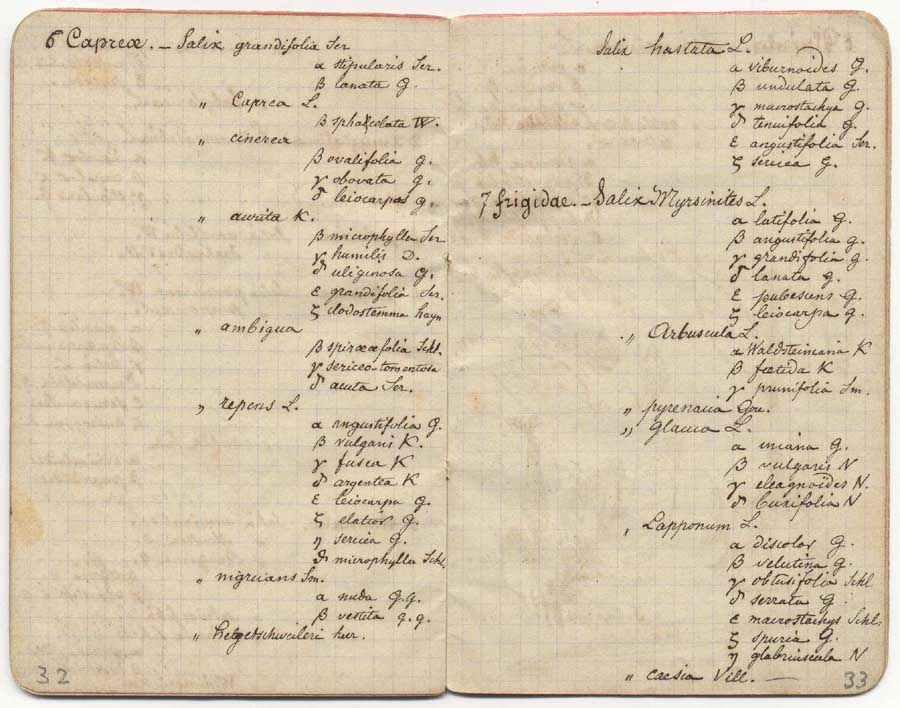 6 Capreæ. - Salix grandifolia Ser
α stipularis Ser.
β lanata G.
„ Caprea L.
β sphacelata W.
„ cinerea
β ovalifolia G.
γ obovata G.
δ leiocarpas G.
„ aurita K.
β microphylla Ser
γ humilis D.
δ uliginosa G.
ε grandifolia Ser.
ζ clodostemma hayn
„ ambigua
β spiræafolia Schl.
γ sericeo-tomentosa
δ acuta Ser.
„ repens L.
α angustifolia G.
β vulgaris K.
γ fusca K
δ argentea K
ε leiocarpa G.
ζ elatior G.
η sericea G.
θ microphylla Schl.
„ nigricans Sm.
α nuda G.G.
β vestita G.G.
„ hegetschweileri her.
32
Salix hastata L.
α viburnoides G.
β undulata G.
γ macrostachya G.
δ tenuifolia G.
ε angustifolia Ser.
ζ sericea G.
7 frigidae. - Salix Myrsinites L.
α latifolia G.
β angustifolia G.
γ grandifolia G.
δ lanata G.
ε pubescens G.
ζ leiocarpa G.
„ Arbuscula L.
α Waldsteiniana K
β fœtida K
γ prunifolia Sm.
„ pyrenaica Gou.
„ glauca L.
α incana G.
β vulgaris N
γ eleagnoïdes N.
δ buxifolia N
„ Lapponum L.
α discolor G.
β velutina G.
γ obtusifolia Schl
δ serrata G
ε macrostachys Schl.
ζ spuria G.
η glabriuscula N
„ caesia Vill. —
33